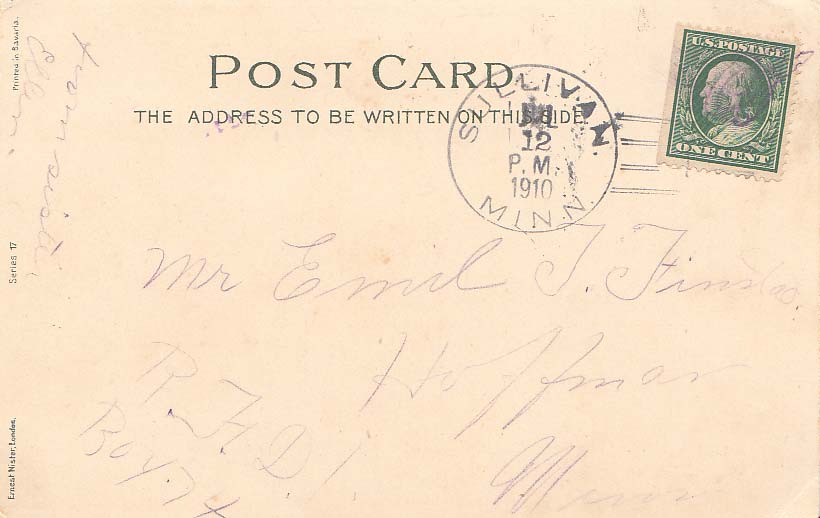 POST CARD.
THE ADDRESS TO BE WRITTEN ON THIS SIDE.
U.S. POSTAGE
ONE CENT
SULLIVAN
12
P. M.
1910
MINN.
Mr Emil T.
Hoffman
Minn
R. F. D 1
Box
from sister
Ellen.
Printed in Bavaria.
Series 17
Ernest Nister, London.